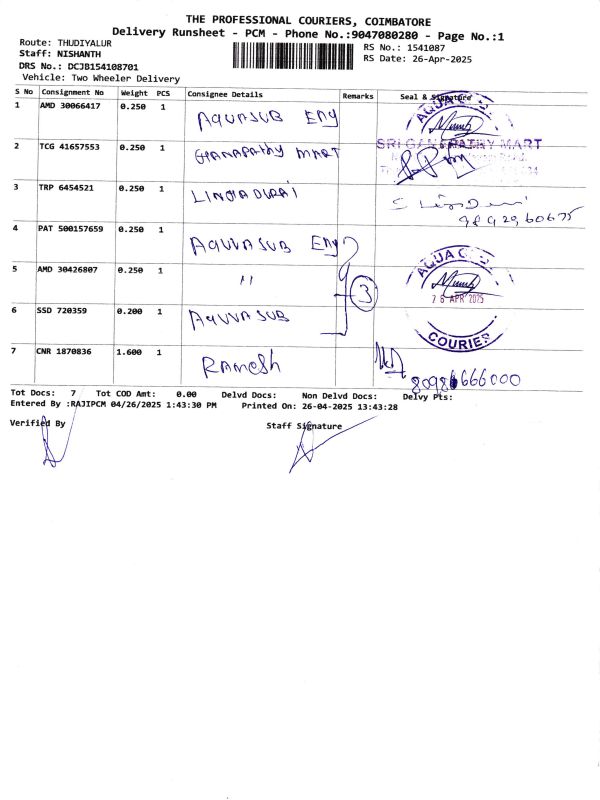 THE PROFESSIONAL COURIERS, COIMBATORE
Delivery Runsheet - PCM - Phone No.:9047080280 - Page No.:1
Route: THUDIYALUR
Staff: NISHANTH
DRS No.: DCJB154108701
Vehicle: Two Wheeler Delivery
RS No.: 1541087
RS Date: 26-Apr-2025
S No Consignment No Weight PCS Consignee Details Remarks Seal & Signature
1 AMD 30066417 0.250 1 AQUASUB ENG
2 TCG 41657553 0.250 1 GANAPATHY MART SRI GANAPATHY MART
3 TRP 6454521 0.250 1 LINGADURAI
4 PAT 500157659 0.250 1 AQUASUB ENG
5 AMD 30426807 0.250 1 " 3 APR 2025
6 SSD 720359 0.200 1 AQUASUB COURIER
7 CNR 1870836 1.600 1 RAMESH
Tot Docs: 7 Tot COD Amt: 0.00 Delvd Docs: Non Delvd Docs: Delvy Pts:
Entered By :RAJIPCM 04/26/2025 1:43:30 PM Printed On: 26-04-2025 13:43:28
Verified By Staff Signature